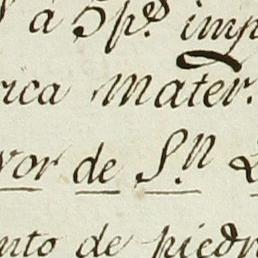 á 5 p.s imp
rica Mater.
vor de S.n
nto de piedr